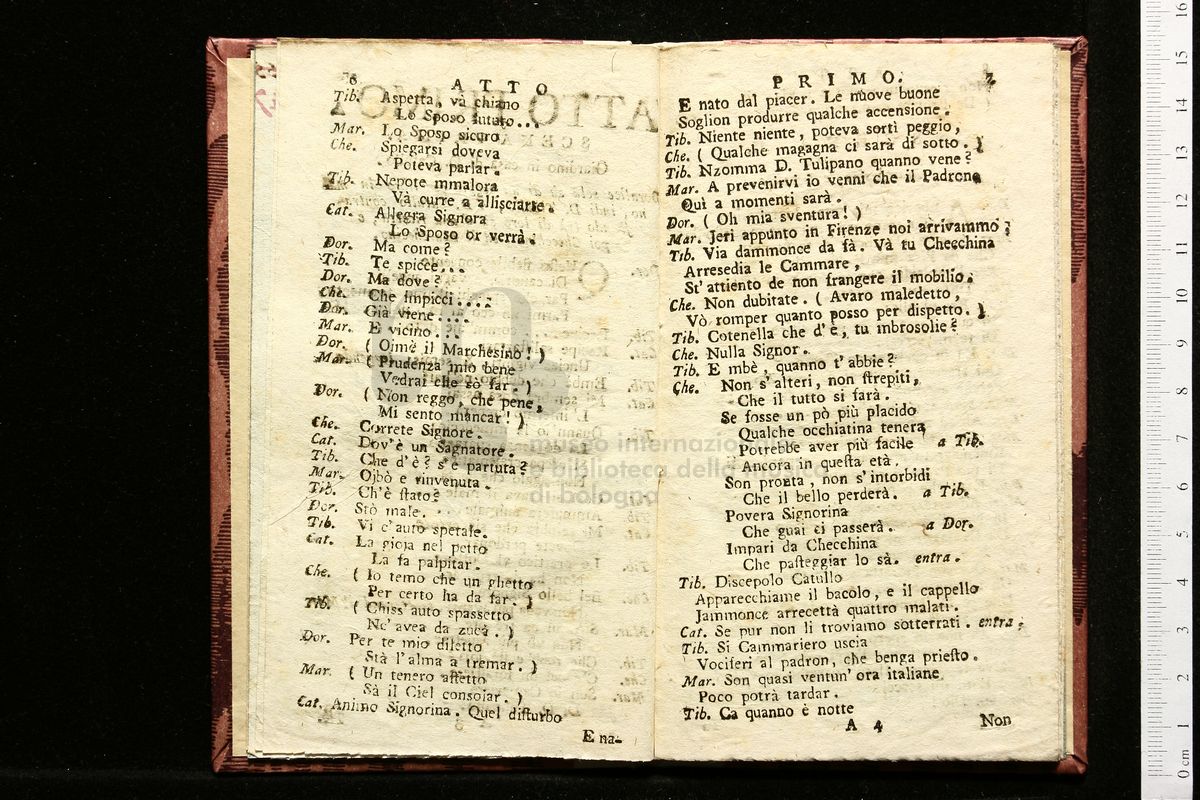 6 ATTO
Tib. Aspetta, và chiano
Lo Sposo fututo...
Mar. Lo Sposo sicuro
Che. Spiegarsi doveva
Poteva parlar.
Tib. Nepote mmalora
Và curre a allisciarte.
Cat. Allegra Signora
Lo Sposo or verrà.
Dor. Ma come?
Tib. Te spicce...
Dor. Ma dove?
Che. Che impicci....
Dor. Già viene....
Mar. E vicino...
Dor. ( Oimè il Marchesino! )
Mar. ( Prudenza mio bene
Vedrai che sò far. )
Dor. ( Non reggo, che pene,
Mi sento mancar! )
Che. Correte Signore.
Cat. Dov'è un Sagnatore.
Tib. Che d'è? s'è partuta?
Mar. Oibò è rinvenuta.
Tib. Ch'è ſtato?
Dor. Stò male.
Tib. Vi c'auto speraſe.
Cat. La gioja nel petto
La fa palpitar.
Che. ( Io temo che un ghetto
Per certo ha da far. )
Tib. ( Chiss'auto spassetto
Nc'avea da zucà. )
Dor. Per te mio diletto
Stà l'alma a tremar. )
Mar. ( Un tenero affetto
Sà il Ciel consolar. )
Cat. Animo Signorina. Quel diſturbo
E na-
PRIMO. 7
E nato dal piacer. Le nuove buone
Soglion produrre qualche accensione.
Tib. Niente niente, poteva sortì peggio,
Che. ( Qualche magagna ci sarà di sotto. )
Tib. Nzomma D. Tulipano quanno vene?
Mar. A prevenirvi io venni che il Padrone
Quì a momenti sarà.
Dor. ( Oh mia sventura! )
Mar. Jeri appunto in Firenze noi arrivammo;
Tib. Via dammonce da fà. Và tu Checchina
Arresedia le Cammare,
St'attiento de non frangere il mobilio.
Che. Non dubitate. ( Avaro maledetto,
Vò romper quanto posso per dispetto. )
Tib. Cotenella che d'è, tu mbrosolie?
Che. Nulla Signor.
Tib. E mbè, quanno t'abbie?
Che. Non s'alteri, non ſtrepiti,
Che il tutto si farà.
Se fosse un pò più placido
Qualche occhiatina tenera
Potrebbe aver più facile a Tib.
Ancora in queſta età.
Son pronta, non s'intorbidi
Che il bello perderà. a Tib.
Povera Signorina
Che guai ci passerà. a Dor.
Impari da Checchina
Che paſteggiar lo sà. entra.
Tib. Discepolo Catullo
Apparecchiame il bacolo, e il cappello
Jammonce arrecettà quattro malati.
Cat. Se pur non li troviamo sotterrati. entra;
Tib. Si Cammariero uscia
Vociferi al padron, che benga prieſto.
Mar. Son quasi ventun'ora italiane
Poco potrà tardar.
Tib. Ca quanno è notte
A 4 Non
museo internazionale
e biblioteca della musica
di bologna
0 cm 1 2 3 4 5 6 7 8 9 10 11 12 13 14 15 16